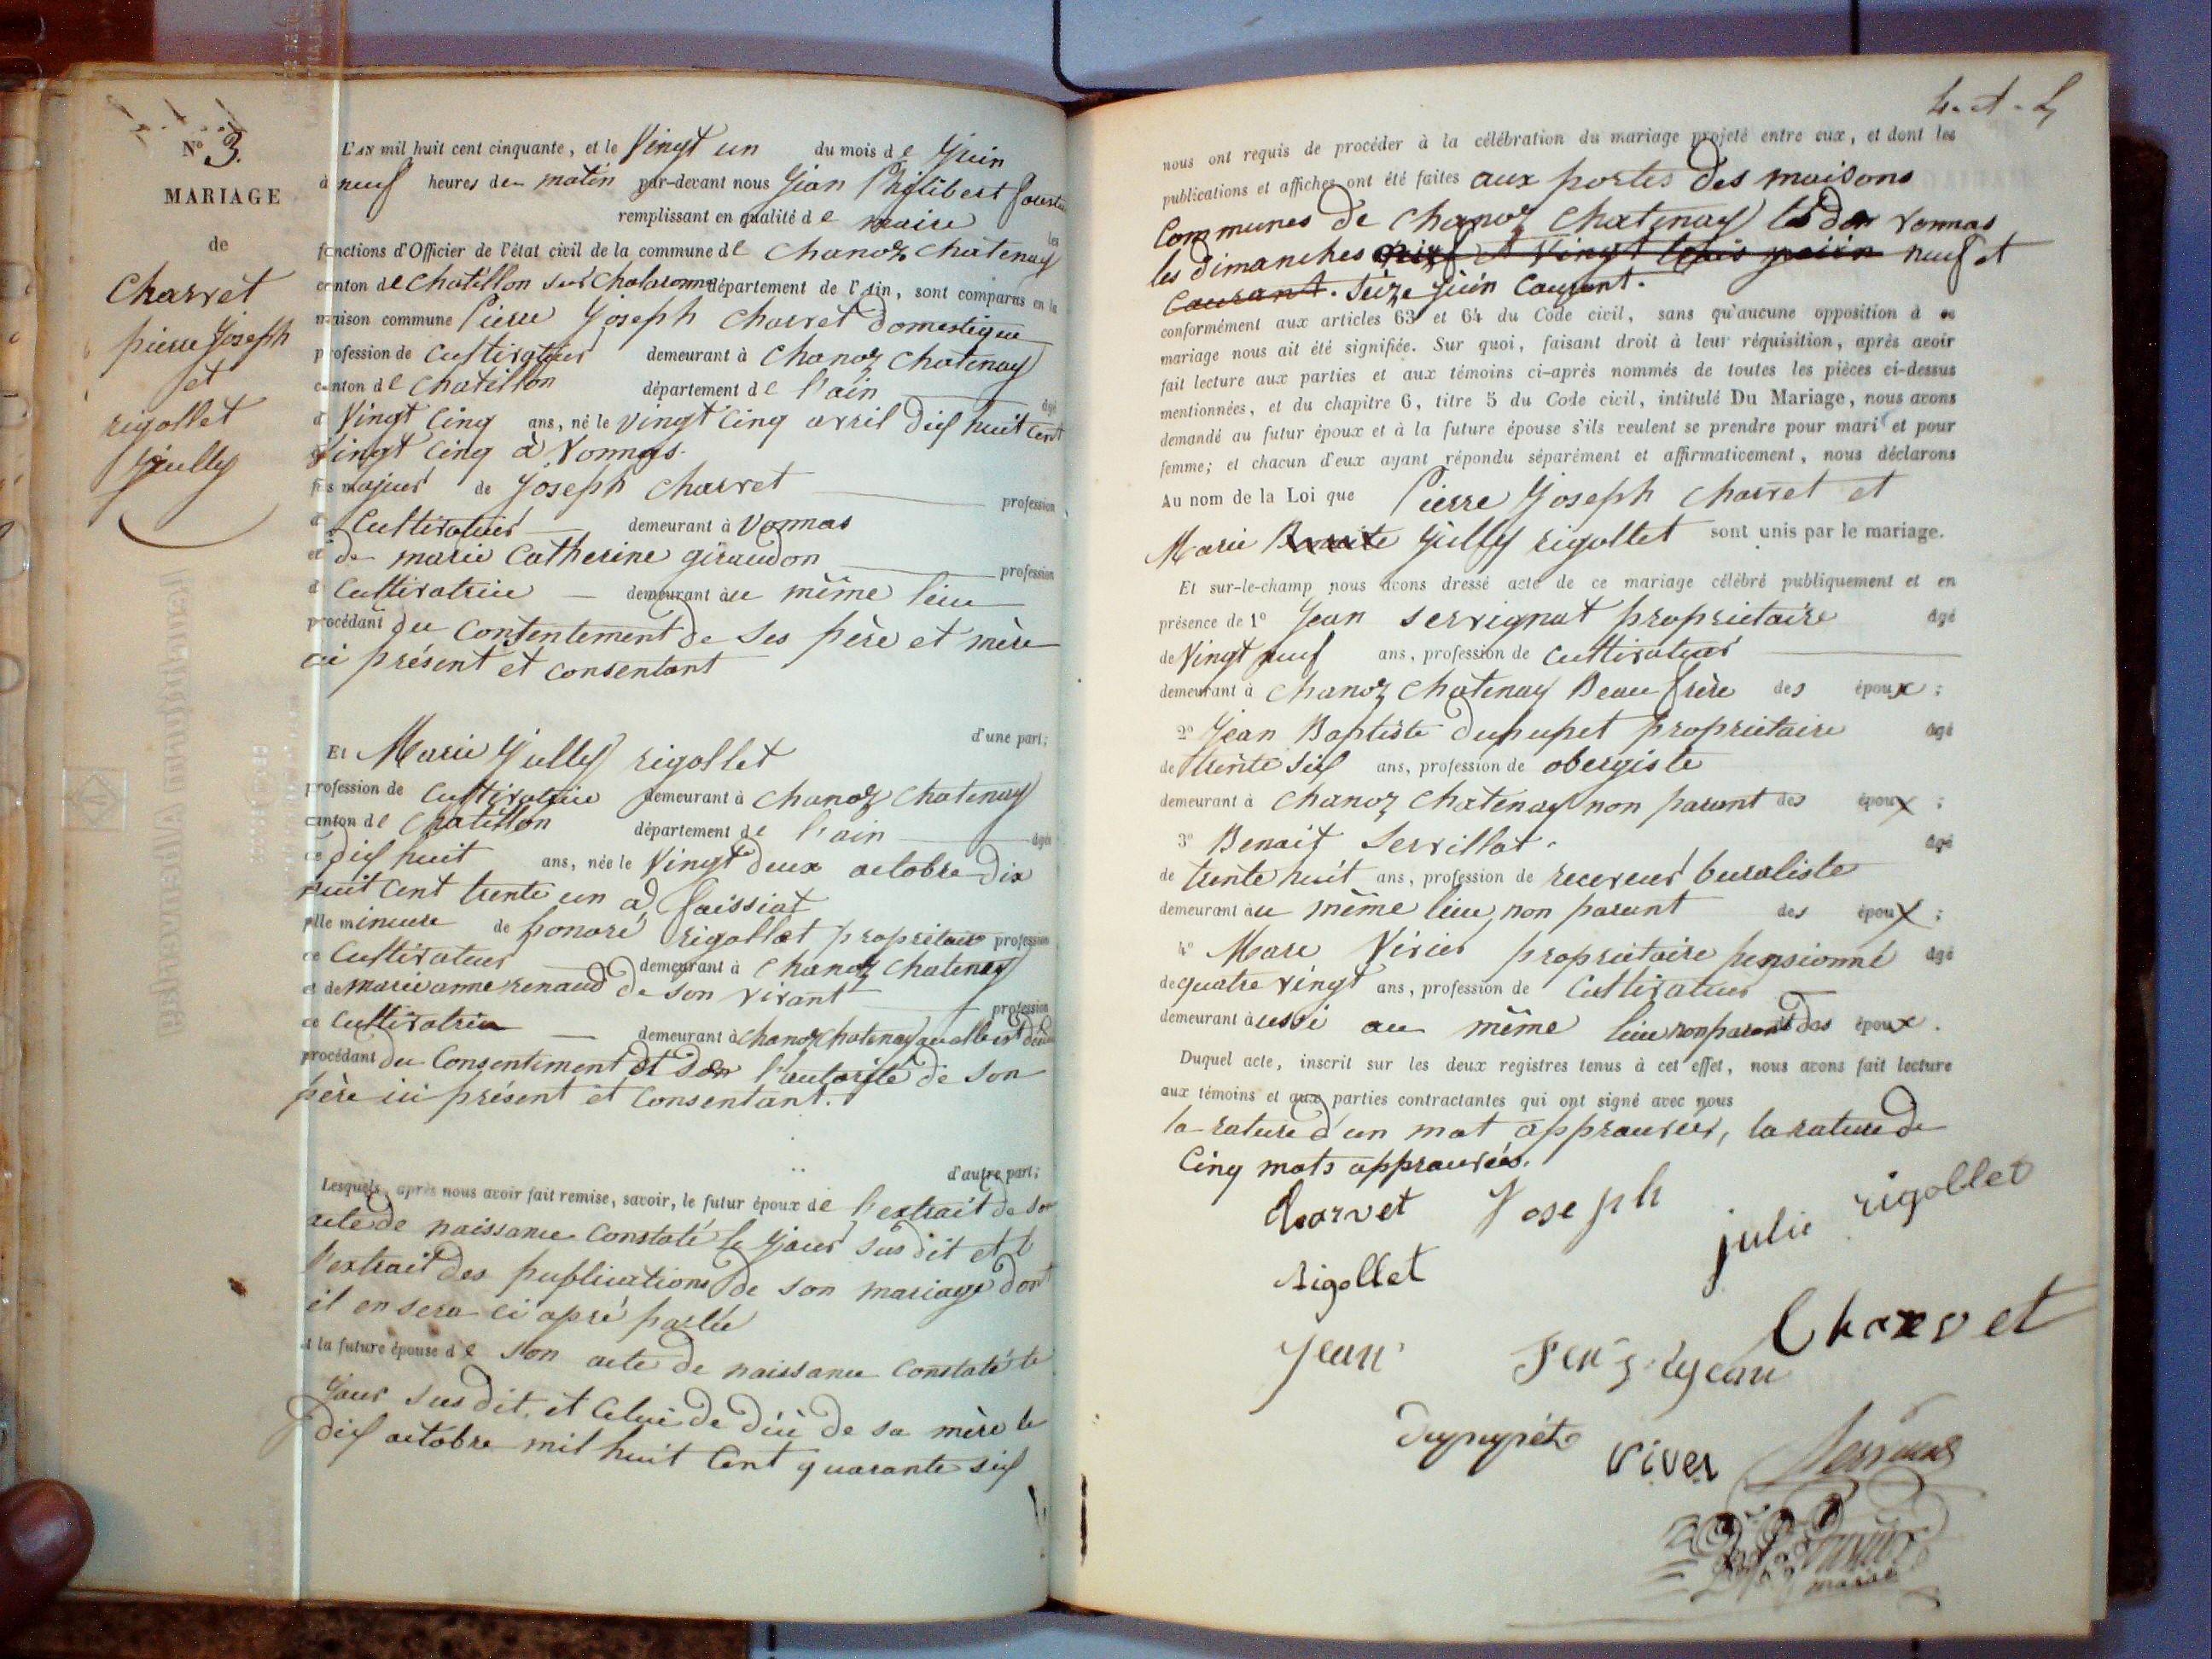 N° 3.
MARIAGE
de
Charvet
pierre Joseph
et
rigollet
Jully
L'AN mil huit cent cinquante, et le Vingt un du mois de Juin
à neuf heures du matin par-devant nous Jean Philibert
remplissant en qualité de maire les
fonctions d'Officier de l'état civil de la commune de Chanoz Chatenay
canton de Chatillon sur Chalaronne département de l'Ain, sont comparus en la
maison commune Pierre Joseph Charvet domestique
profession de Cultivateur demeurant à Chanoz Chatenay
canton de Chatillon département de l'ain âgé
d Vingt Cinq ans, né le vingt Cinq avril dix huit Cent
Vingt Cinq à Vonnas.
fils majeur de Joseph Charvet profession
d Cultivateur demeurant à Vonnas
et de marie Catherine giraudon profession
d Cultivatrice demeurant au même lieu
procédant du Contentement de Ses père et mère
ici présent et Consentant
d'une part;
Et Marie Jully rigollet
profession de Cultivatrice demeurant à Chanoz Chatenay
canton de Chatillon département de l'ain âgée
de dix huit ans, née le Vingt deux octobre Dix
huit Cent trente un à Foissiat
fille mineure de honoré rigollet propriétaire profession
de Cultivateur demeurant à Chanoz Chatenay
et de marie anne renaud de son vivant profession
de Cultivatrice demeurant à Chanoz Chatenay ou elle est
procédant du Consentement et de l'autorité de Son
père ici présent et Consentant.
d'autre part;
Lesquels, après nous avoir fait remise, savoir, le futur époux de l'extrait de Son
acte de naissance Constaté le Jour Sus dit et
l'extrait des publications de Son mariage dont
il en sera ci apré parlée
et la future épouse de Son acte de naissance Constaté le
Jour Sus dit, et Celui de décé de sa mère le
dix octobre mil huit Cent quarante six
nous ont requis de procéder à la célébration du mariage projeté entre eux, et dont les
publications et affiches ont été faites aux portes des maisons
Communes de Chanoz Chatenay Vonnas
les dimanches neuf et
Courant. Seize Juin Courant.
conformément aux articles 63 et 64 du Code civil, sans qu'aucune opposition à ce
mariage nous ait été signifiée. Sur quoi, faisant droit à leur réquisition, après avoir
fait lecture aux parties et aux témoins ci-après nommés de toutes les pièces ci-dessus
mentionnées, et du chapitre 6, titre 5 du Code civil, intitulé Du Mariage, nous avons
demandé au futur époux et à la future épouse s'ils veulent se prendre pour mari et pour
femme; et chacun d'eux ayant répondu séparément et affirmativement, nous déclarons
Au nom de la Loi que Pierre Joseph Charvet et
Marie Jully rigollet sont unis par le mariage.
Et sur-le-champ nous avons dressé acte de ce mariage célébré publiquement et en
présence de 1° Jean Servignat propriétaire âgé
de Vingt neuf ans, profession de Cultivateur
demeurant à Chanoz Chatenay Beau frère des époux;
2° Jean Baptiste Dupupet propriétaire âgé
de trente Six ans, profession de obergiste
demeurant à Chanoz Chatenay non parant des époux;
3° Benoit Servillat âgé
de trente huit ans, profession de receveur buraliste
demeurant au même lieu, non parant des époux;
4° Marc Virier propriétaire pensionné âgé
de quatre vingt ans, profession de Cultivateur
demeurant aussi au même lieu non parant des époux.
Duquel acte, inscrit sur les deux registres tenus à cet effet, nous avons fait lecture
aux témoins et aux parties contractantes qui ont signé avec nous
la rature d'un mot approuvée, la rature de
Cinq mots approuvées.
Charvet Joseph julie rigollet
Rigollet
Charvet
Jean
Dupupet viver
maire